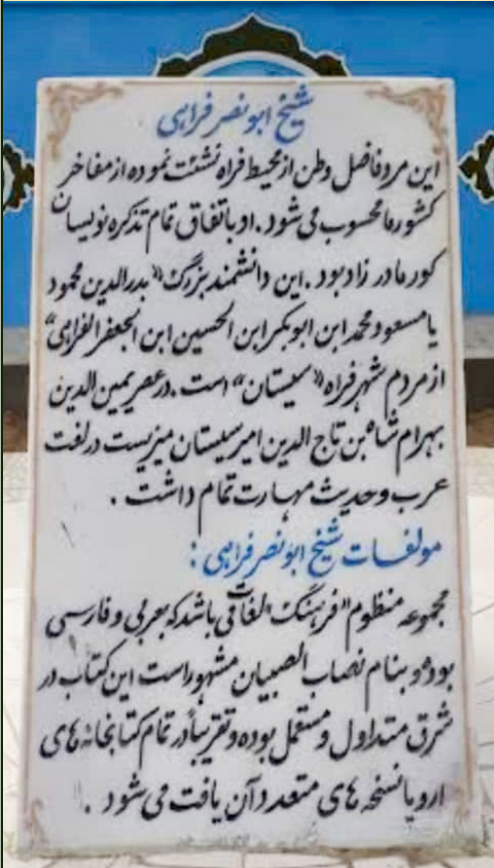 شیخ ابونصر فراهی
این مرد فاضل وطن از محیط فراه نشئت نموده از مفاخر
کشور ما محسوب می شود . او باتفاق تمام تذکره نویسان
کور مادر زاد بود . این دانشمند بزرگ "بدرالدین محمود
یا مسعود محمد ابن ابوبکر ابن الحسین ابن الجعفر الفراهی"
از مردم شهر فراه "سیستان" است . در عصر یمین الدین
بهرام شاه بن تاج الدین امیر سیستان میزیست در لغت
عرب و حدیث مهارت تمام داشت .
مولفات شیخ ابونصر فراهی :
مجموعه منظوم "فرهنگ" لغاتی باشد که بعربی و فارسی
بوده و بنام نصاب الصبیان مشهور است این کتاب در
شرق متداول و مستعمل بوده و تقریباً در تمام کتابخانه های
اروپا نسخه های متعدد آن یافت می شود .